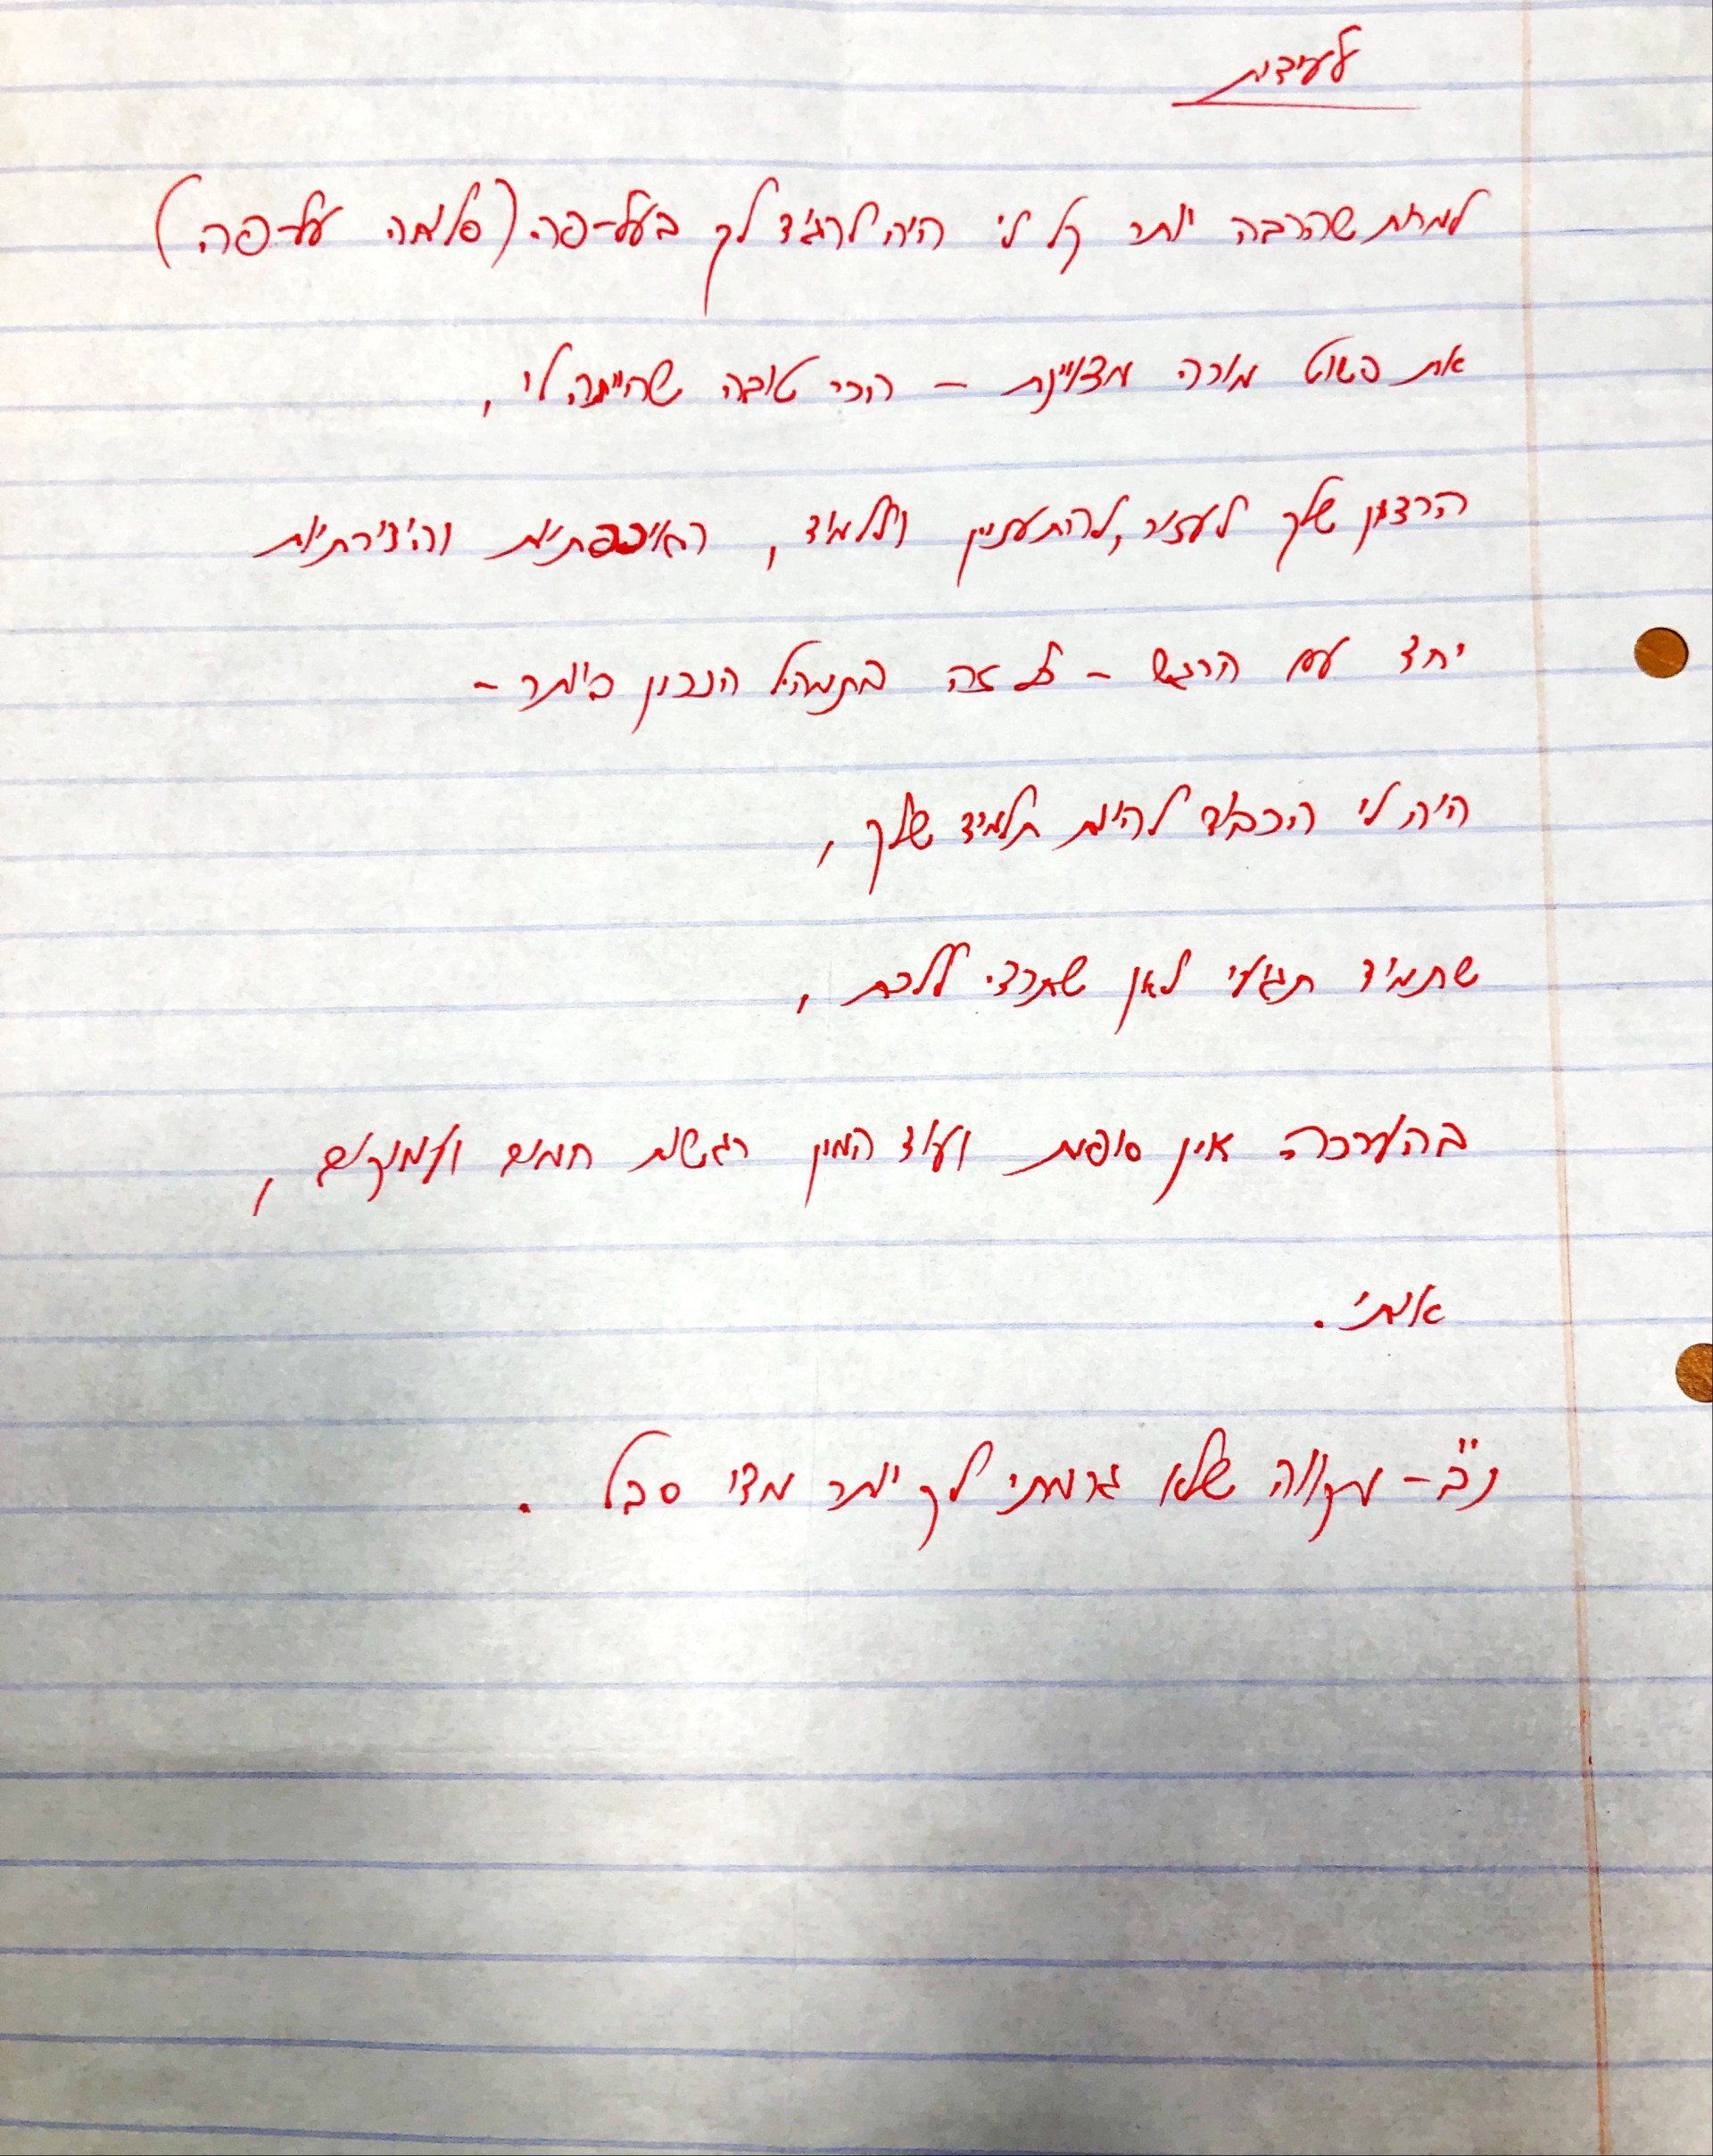 לעידית
למרות שהרבה יותר קל לי היה להגיד לך בעל-פה (סליחה על-פה)
את פשוט מורה מצויינת - הכי טובה שהייתה לי,
הרצון שלך לעזור, להתעניין וללמוד, האיכפתיות והיצירתיות
יחד עם הרגש - כל זה בתמהיל הנכון ביותר -
היה לי הכבוד להיות תלמיד שלך,
שתמיד תגעי לאן שתרצי ללכת,
בהערכה אין סופית ועוד המון רגשות חמים ועמוקים,
איתי.
נ"ב - מקווה שלא גרמתי לך יותר מדי סבל.